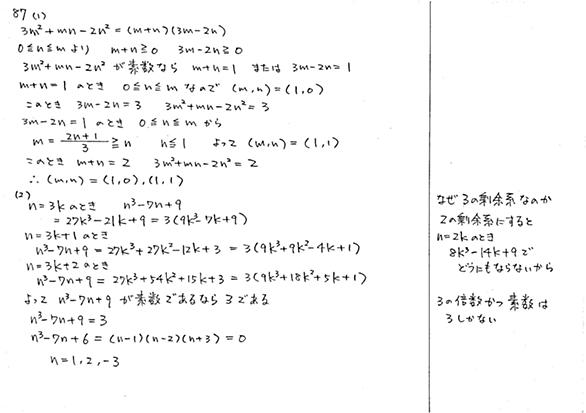 87 (1)
3m²+mn-2n²=(m+n)(3m-2n)
0≦n≦m より m+n≧0 3m-2n≧0
3m²+mn-2n² が素数なら m+n=1 または 3m-2n=1
m+n=1 のとき 0≦n≦m なので (m,n)=(1,0)
このとき 3m-2n=3 3m²+mn-2n²=3
3m-2n=1 のとき 0≦n≦m から
m=(2n+1)/3≧n n≦1 よって (m,n)=(1,1)
このとき m+n=2 3m²+mn-2n²=2
∴ (m,n)=(1,0),(1,1)
(2)
n=3k のとき n³-7n+9
=27k³-21k+9=3(9k³-7k+9)
n=3k+1 のとき
n³-7n+9=27k³+27k²-12k+3=3(9k³+9k²-4k+1)
n=3k+2 のとき
n³-7n+9=27k³+54k²+15k+3=3(9k³+18k²+5k+1)
よって n³-7n+9 が素数であるなら 3である
n³-7n+9=3
n³-7n+6=(n-1)(n-2)(n+3)=0
n=1,2,-3
なぜ 3の剰余系なのか
2の剰余系にすると
n=2kのとき
8k³-14k+9で
どうにもならないから
3の倍数かつ素数は
3しかない